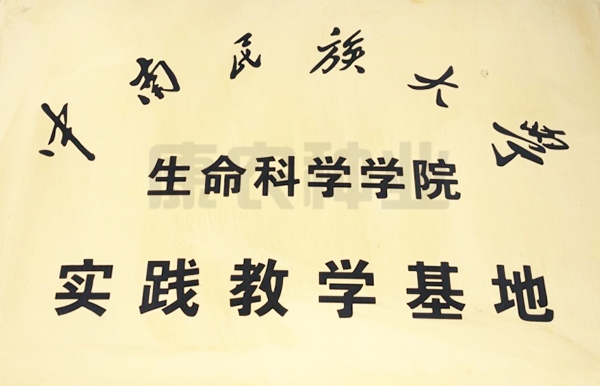 中南民族大学
生命科学学院
实践教学基地
康农种业